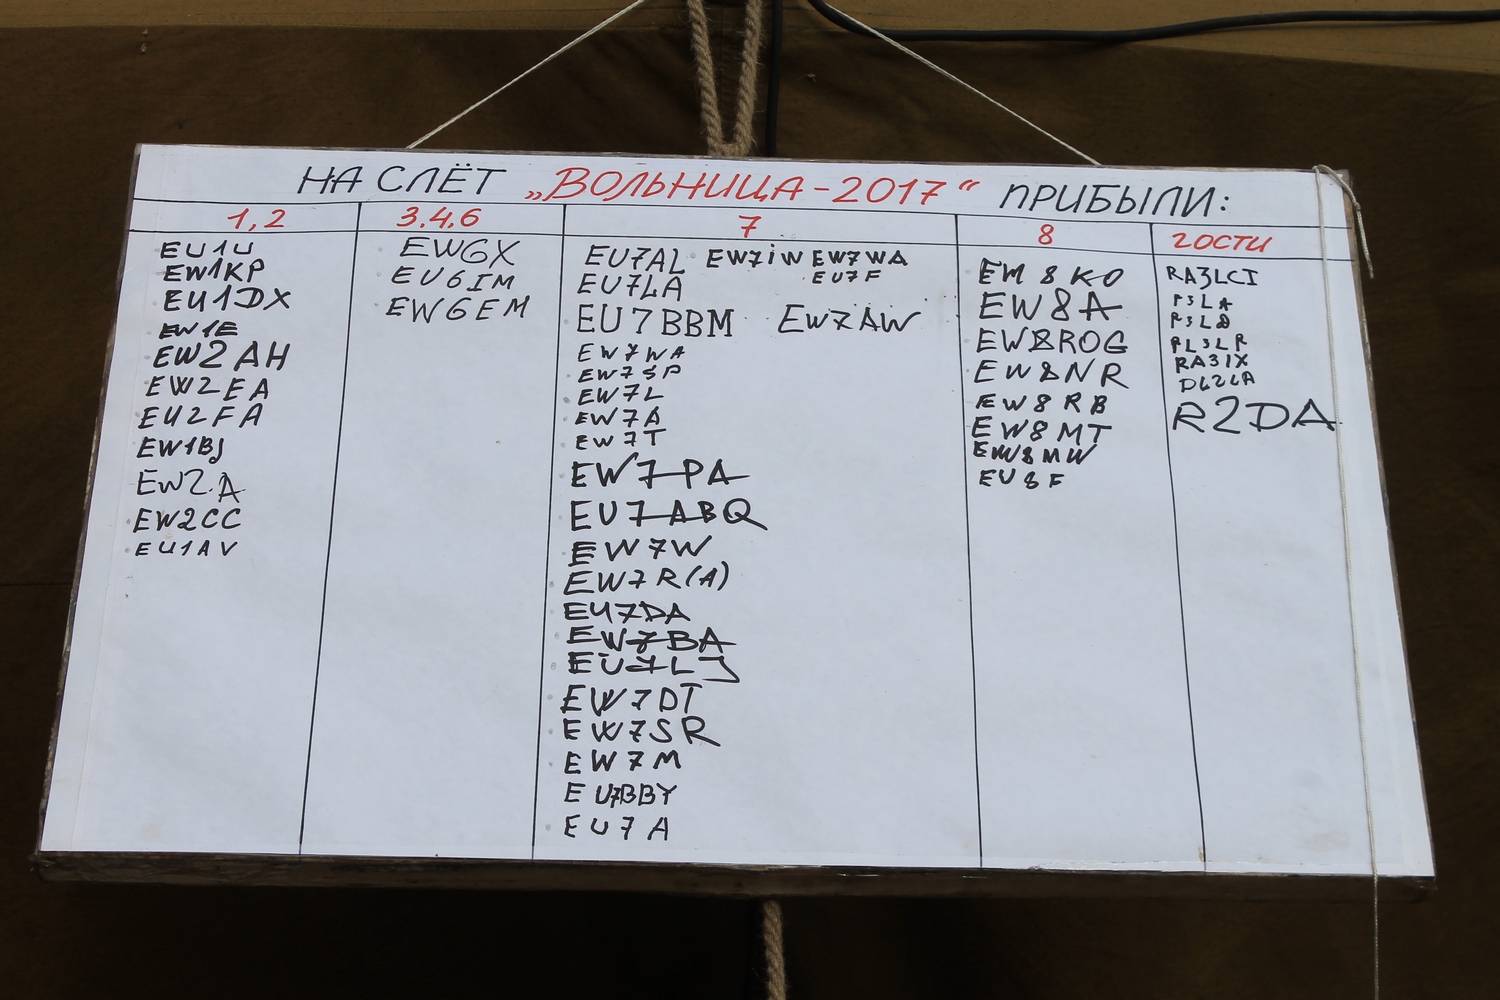 НА СЛЁТ „ВОЛЬНИЦА-2017“ ПРИБЫЛИ:
1,2
EU1U
EW1KP
EU1DX
EW1E
EW2AH
EW2EA
EU2FA
EW1BJ
EW2A
EW2CC
EU1AV
3,4,6
EW6X
EU6IM
EW6EM
7
EU7AL EW7iW EW7WA
EU7LA EU7F
EU7BBM EW7AW
EW7WA
EW7SP
EW7L
EW7A
EW7T
EW7PA
EU7ABQ
EW7W
EW7R(A)
EU7DA
EW7BA
EU7LJ
EW7DT
EW7SR
EW7M
EU7BBY
EU7A
8
EW8KO
EW8A
EW8ROG
EW8NR
EW8RB
EW8MT
EW8MW
EU8F
ГОСТИ
RA3LCI
R3LA
RA3IX
R2DA